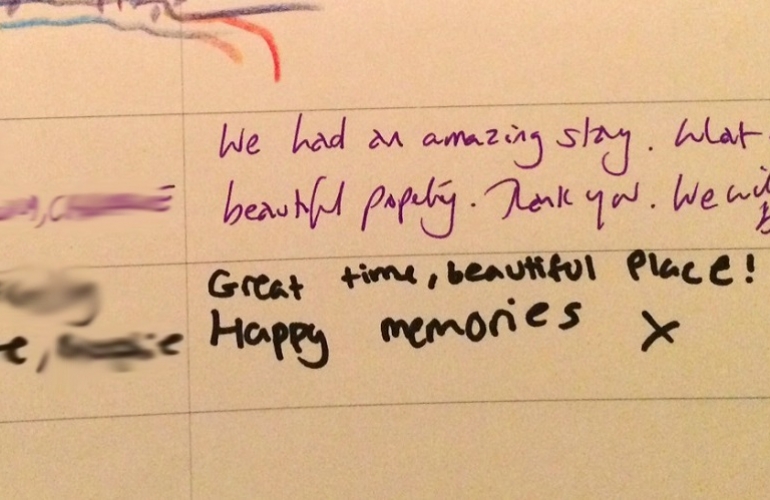 We had an amazing stay. What
beautiful property. Thank you. We will
Great time, beautiful place!
Happy memories x